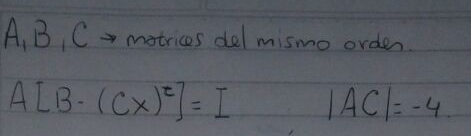 A, B, C → matrices del mismo orden.
A[B - (CX)^t] = I |AC| = -4.